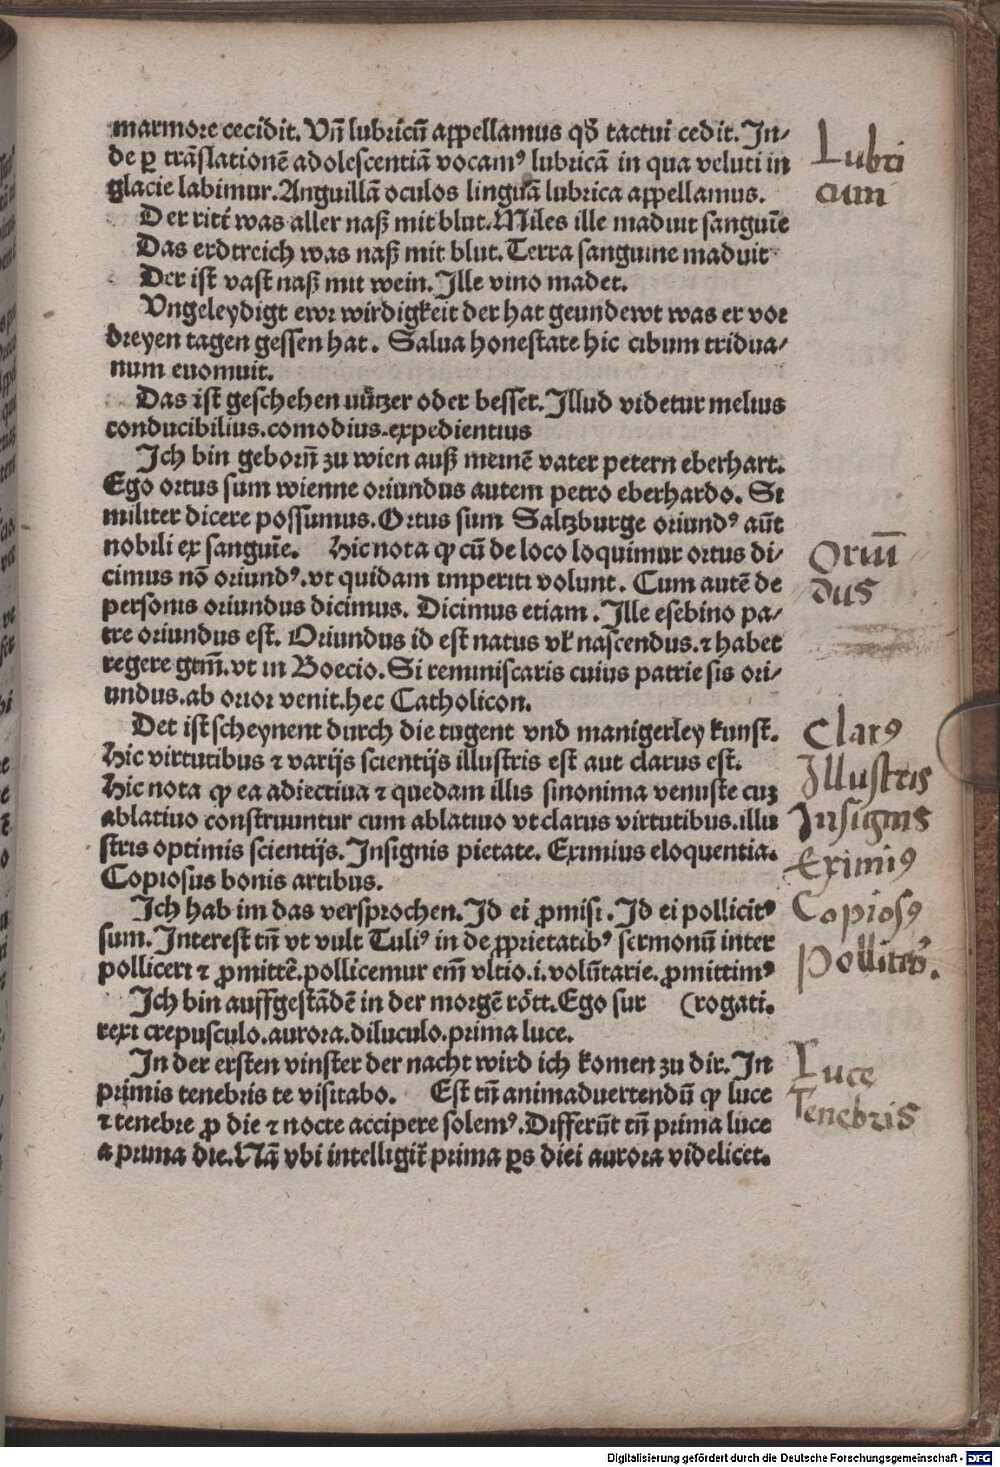 marmore cecidit. Vñ lubricũ appellamus qð tactui cedit. In⸗
de ꝑ trãslationẽ adolescentiã vocamꝰ lubricã in qua veluti in
glacie labimur. Anguillã oculos linguã lubrica appellamus.
Der ritt̃ was aller naß mit blut. Miles ille maduit sanguĩe
Das erdtreich was naß mit blut. Terra sanguine maduit
Der ist vast naß mit wein. Ille vino madet.
Vngeleydigt ewr wirdigkeit der hat geundewt was er vor
dreyen tagen gessen hat. Salua honestate hic cibum tridua⸗
num euomuit.
Das ist geschehen nützer oder besser. Illud videtur melius
conducibilius. comodius. expedientius
Ich bin geborñ zu wien auß meinẽ vater petern eberhart.
Ego ortus sum wienne oriundus autem petro eberhardo. Si
militer dicere possumus. Ortus sum Saltzburge oriundꝰ aũt
nobili ex sanguĩe. Hic nota ꝙ cũ de loco loquimur ortus di⸗
cimus nõ oriundꝰ. vt quidam imperiti volunt. Cum autẽ de
personis oriundus dicimus. Dicimus etiam. Ille esebino pa⸗
tre oriundus est. Oriundus id est natus vł nascendus. ⁊ habet
regere gtm̃. vt in Boecio. Si reminiscaris cuius patrie sis ori⸗
undus. ab orior venit. hec Catholicon.
Det ist scheynent durch die tugent vnd manigerley kunst.
Hic virtutibus ⁊ varijs scientijs illustris est aut clarus est.
Hic nota ꝙ ea adiectiua ⁊ quedam illis sinonima venuste cuz
ablatiuo construuntur cum ablatiuo vt clarus virtutibus. illu
stris optimis scientijs. Insignis pietate. Eximius eloquentia.
Copiosus bonis artibus.
Ich hab im das versprochen. Id ei ꝓmisi. Id ei pollicitꝰ
sum. Interest tñ vt vult Tuliꝰ in de ꝓprietatibꝰ sermonũ inter
polliceri ⁊ ꝓmittẽ. pollicemur em̃ vltio. i. volũtarie. ꝓmittimꝰ
Ich bin auffgestãdẽ in der morgẽ rött. Ego sur (rogati.
rexi crepusculo. aurora. diluculo. prima luce.
In der ersten vinster der nacht wird ich komen zu dir. In
primis tenebris te visitabo. Est tñ animaduertendũ ꝙ luce
⁊ tenebre ꝓ die ⁊ nocte accipere solemꝰ. Differũt tñ prima luce
a prima die. Nã vbi intelligit̃ prima ꝑs diei aurora videlicet.
Lubri
cum
Oriũ
dus
Clarꝰ
Illustris
Insignis
Eximiꝰ
Copiosꝰ
Luce
Tenebris
Digitalisierung gefördert durch die Deutsche Forschungsgemeinschaft - DFG